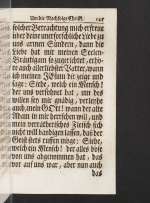 Von der Nachfolge Christi. 145
solcher Betrachtung mich erfreue
über deine unerforschliche Liebe zu
uns armen Sündern, dann die
Liebe hat mir meinen Seelen-
Bräutigam so zugerichtet, erho-
re auch allerliebster Vatter, wann
ich meinen JEsum dir zeige und
sage: Siehe, welch ein Mensch!
der uns versöhnet hat, um deß
willen sey mir gnädig, verleyhe
auch, mein GOtt! wann der alte
Adam in mir herrschen will, und
mein verrätherisches Fleisch sich
nicht will bändigen lassen, daß der
Geist stets ruffen möge: Siehe,
welch ein Mensch! der alles böse
von uns abgenommen hat, das
vor auf uns war, aber nun auch
das